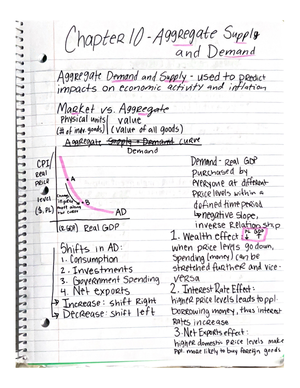 Chapter 10 - Aggregate Supply
and Demand
Aggregate Demand and Supply - used to predict
impacts on economic activity and inflation
Market vs. Aggregate
Physical units | value
(# of indv. goods) | (value of all goods)
Aggregate Supply + Demand curve
Demand
CPI/
Real
Price
level
($, PL)
A
B
AD
(Q, GDP) Real GDP
Demand - Real GDP
purchased by
everyone at different
price levels within a
defined time period
↳ negative slope,
inverse relationship
Shifts in AD:
1. Consumption
2. Investments
3. Government Spending
4. Net exports
→ Increase: shift Right
→ Decrease: shift left
1. Wealth effect
when price levels go down,
spending (money) can be
stretched further and vice-
versa
2. Interest Rate Effect:
higher price levels leads to ppl.
borrowing money, thus interest
rates increase
3. Net Exports effect:
higher domestic price levels make
ppl. more likely to buy foreign goods